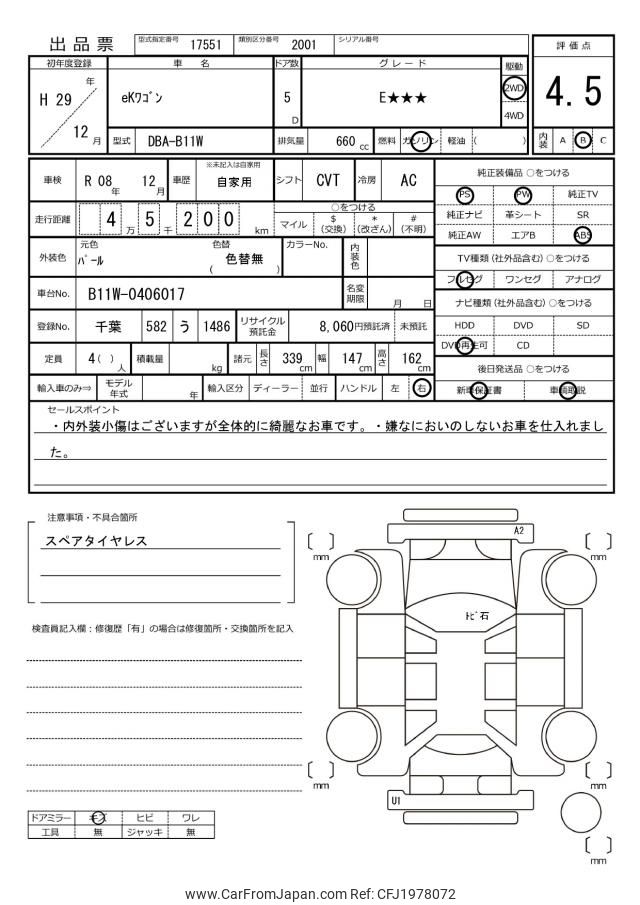 出品票 型式指定番号 17551 類別区分番号 2001 シリアル番号
評価点
初年度登録 車名 ドア数 グレード 駆動
H 29 年 12 月 eKワゴン 5 D E★★★ 2WD 4WD
4.5
型式 DBA-B11W 排気量 660 cc 燃料 ガソリン 軽油 ( )
内装 A B C
車検 R 08 年 12 月 車歴 ※未記入は自家用 自家用 シフト CVT 冷房 AC
純正装備品 ○をつける
PS PW 純正TV
走行距離 4 万 5 千 2 0 0 km ○をつける
マイル $ (交換) * (改ざん) # (不明)
純正ナビ 革シート SR
純正AW エアB ABS
外装色 元色 パール 色替 ( 色替無 ) カラーNo. 内装色
TV種類 (社外品含む) ○をつける
フルセグ ワンセグ アナログ
車台No. B11W-0406017 名変期限 月 日
ナビ種類 (社外品含む) ○をつける
登録No. 千葉 582 う 1486 リサイクル預託金 8,060円預託済 未預託
HDD DVD SD
DVD再生可 CD
定員 4 ( ) 人 積載量 kg 諸元 長さ 339 cm 幅 147 cm 高さ 162 cm
後日発送品 ○をつける
輸入車のみ⇒ モデル年式 年 輸入区分 ディーラー 並行 ハンドル 左 右
新車保証書 車輌取説
セールスポイント
・内外装小傷はございますが全体的に綺麗なお車です。・嫌なにおいのしないお車を仕入れまし
た。
注意事項・不具合箇所
スペアタイヤレス
検査員記入欄：修復歴「有」の場合は修復箇所・交換箇所を記入
A2
mm
mm
トビ石
mm
mm
U1
mm
ドアミラー キズ ヒビ ワレ
工具 無 ジャッキ 無
www.CarFromJapan.com Ref: CFJ1978072